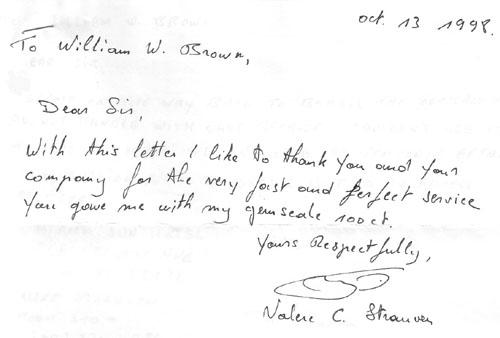 oct. 13 1998.
To William W. Brown,
Dear Sir,
With this letter I like to thank you and your
company for the very fast and perfect service
you gave me with my gemscale 100ct.
Yours Respectfully,
Valere C.